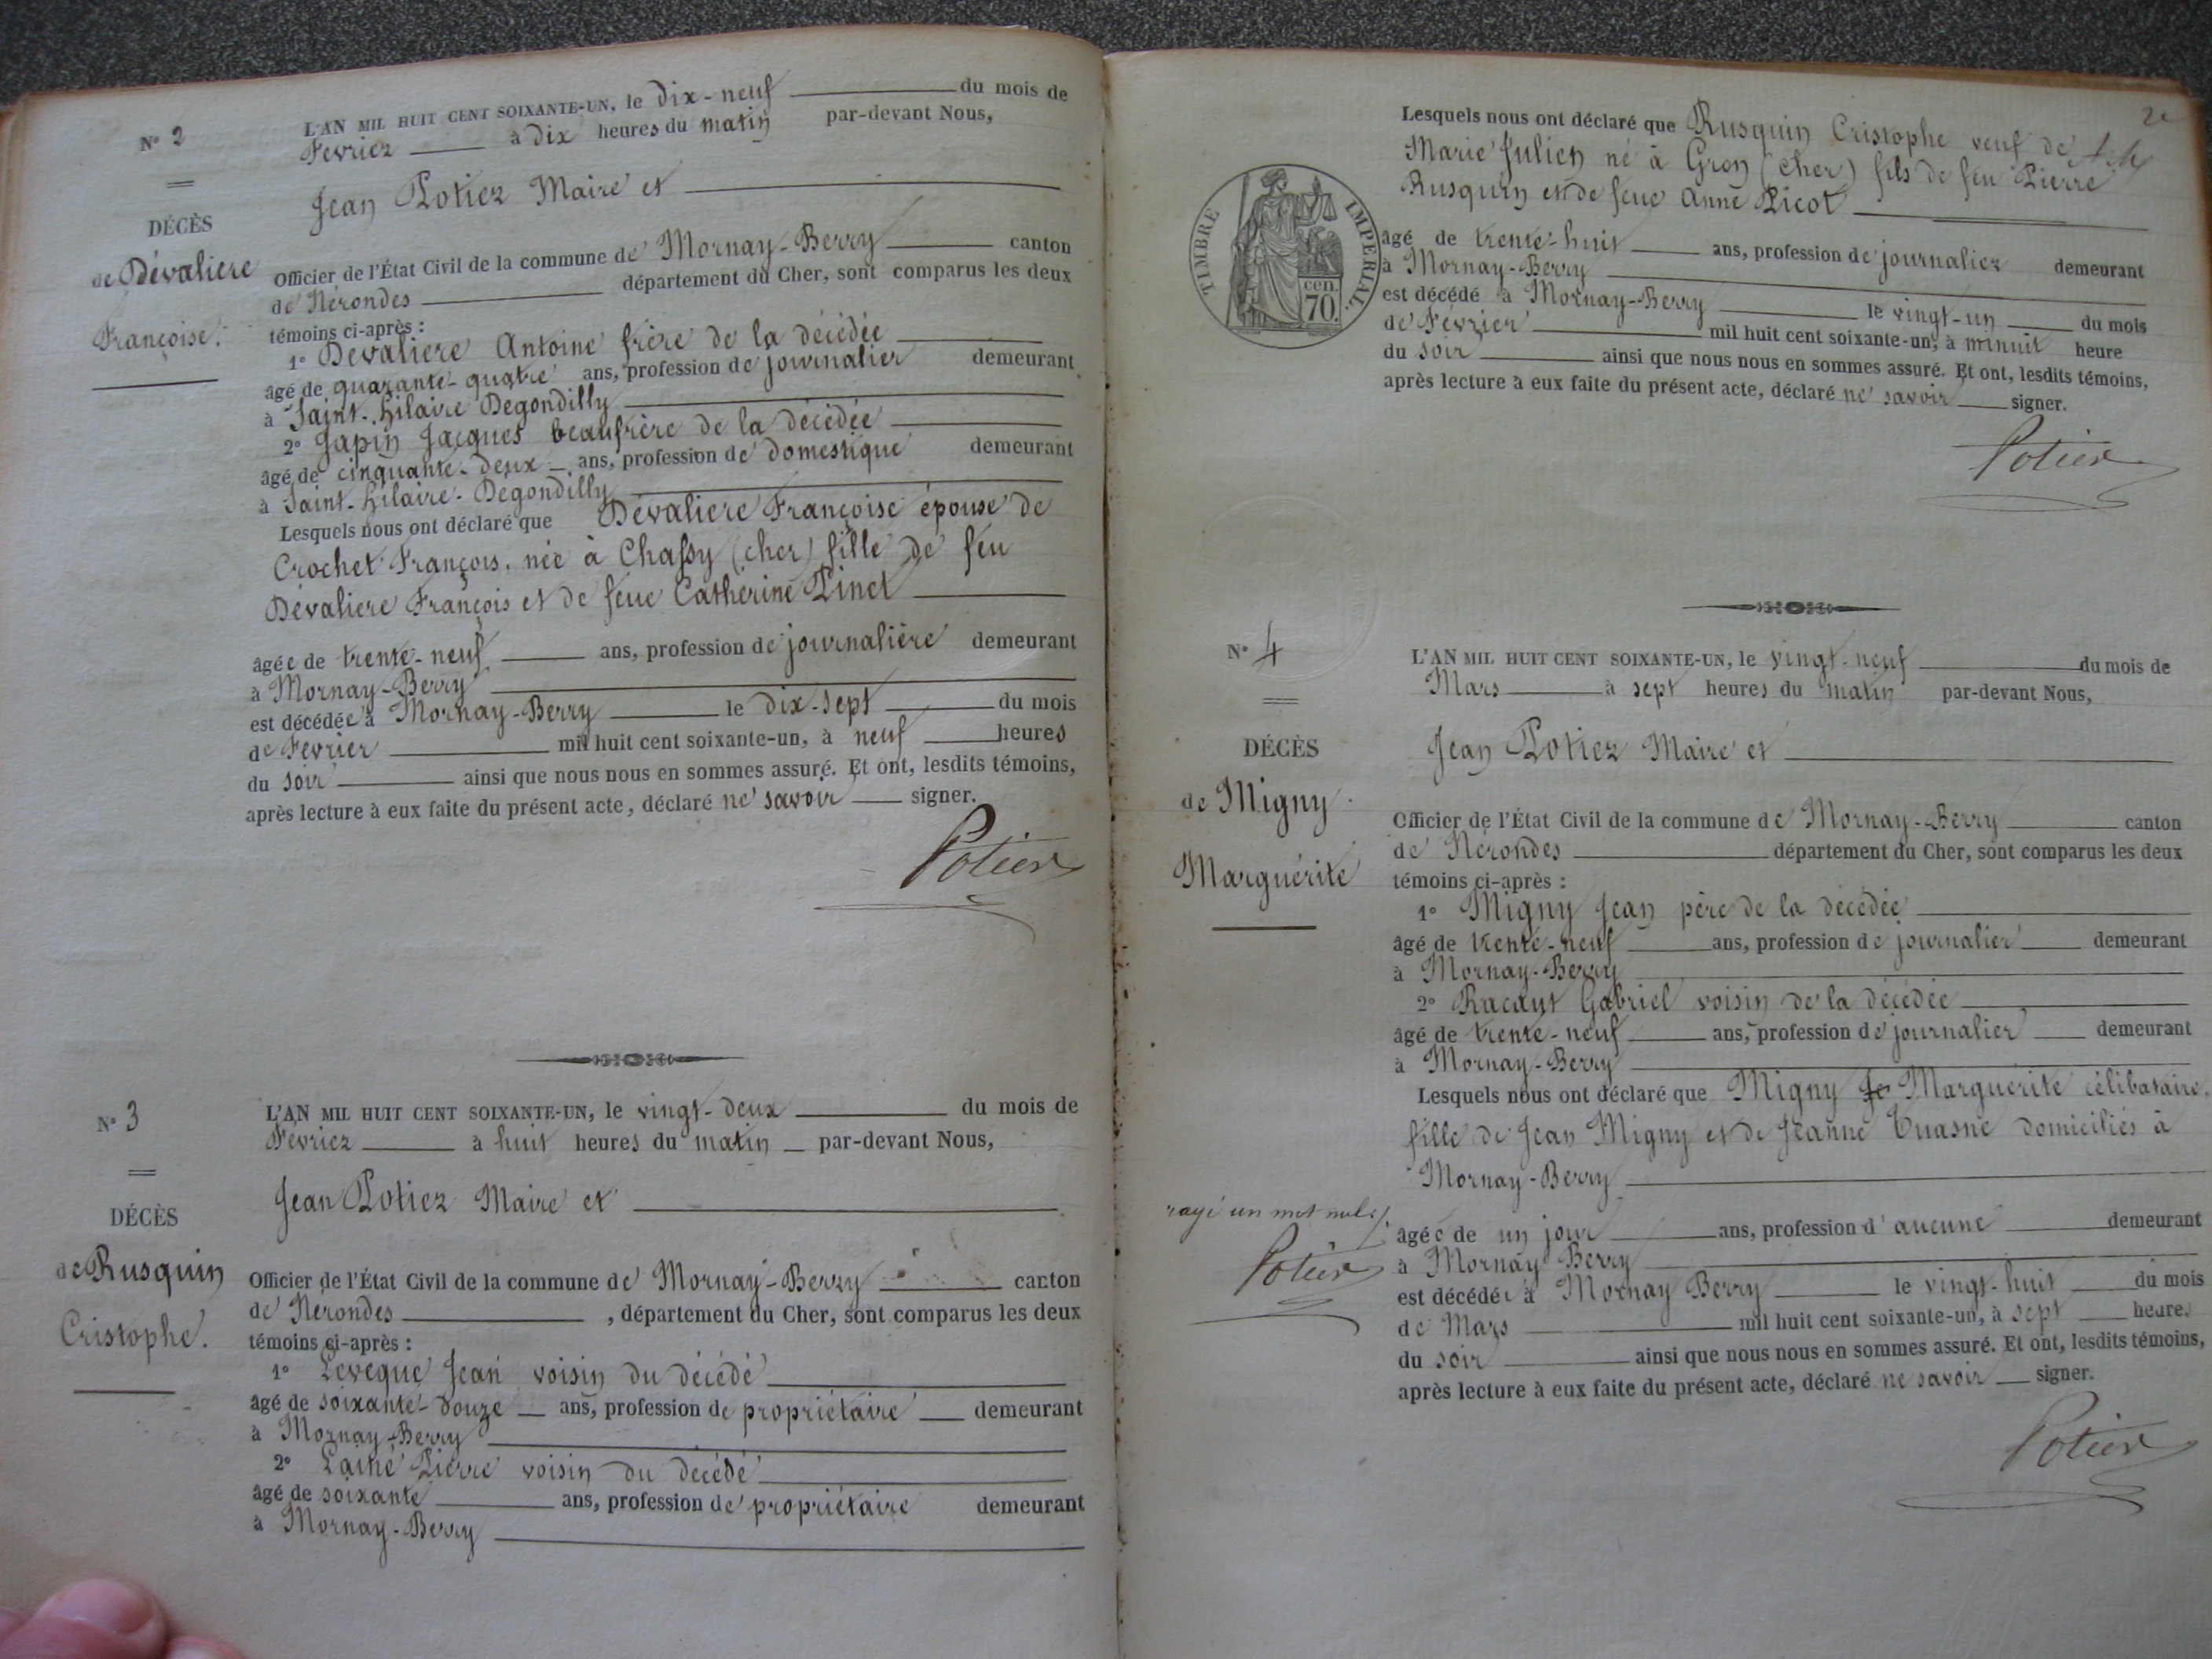 N° 2
DÉCÈS
de Dévaliere
Françoise.
L'AN MIL HUIT CENT SOIXANTE-UN, le dix-neuf du mois de
Fevrier à dix heures du matin par-devant Nous,
Jean Potier Maire et
Officier de l'État Civil de la commune de Mornay-Berry canton
de Nérondes département du Cher, sont comparus les deux
témoins ci-après :
1° Dévaliere Antoine frère de la décédée
âgé de quarante-quatre ans, profession de journalier demeurant
à Saint-hilaire Degondilly
2° Japin Jacques beaufrère de la décédée
âgé de cinquante-deux ans, profession de domestique demeurant
à Saint-hilaire-Degondilly
Lesquels nous ont déclaré que Dévaliere Françoise épouse de
Crochet François, née à Chassy (cher) fille de feu
Dévaliere François et de feue Catherine Pinet
âgée de trente-neuf ans, profession de journalière demeurant
à Mornay-Berry
est décédée à Mornay-Berry le dix-sept du mois
de Fevrier mil huit cent soixante-un, à neuf heures
du soir ainsi que nous nous en sommes assuré. Et ont, lesdits témoins,
après lecture à eux faite du présent acte, déclaré ne savoir signer.
Potier
N° 3
DÉCÈS
de Rusquin
Cristophe.
L'AN MIL HUIT CENT SOIXANTE-UN, le vingt-deux du mois de
Fevrier à huit heures du matin par-devant Nous,
Jean Potier Maire et
Officier de l'État Civil de la commune de Mornay-Berry canton
de Nérondes , département du Cher, sont comparus les deux
témoins ci-après :
1° Leveque Jean voisin du décédé
âgé de soixante-douze ans, profession de propriétaire demeurant
à Mornay-Berry
2° Lainé Pierre voisin du décédé
âgé de soixante ans, profession de propriétaire demeurant
à Mornay-Berry
2e
TIMBRE IMPÉRIAL.
cen.
70.
Lesquels nous ont déclaré que Rusquin Cristophe veuf de
Marie Julien né à Gron (cher) fils de feu Pierre
Rusquin et de feue Anne Picot
âgé de trente-huit ans, profession de journalier demeurant
à Mornay-Berry
est décédé à Mornay-Berry le vingt-un du mois
de Février mil huit cent soixante-un, à minuit heure
du soir ainsi que nous nous en sommes assuré. Et ont, lesdits témoins,
après lecture à eux faite du présent acte, déclaré ne savoir signer.
Potier
N° 4
DÉCÈS
de Migny
Marguérite
L'AN MIL HUIT CENT SOIXANTE-UN, le vingt-neuf du mois de
Mars à sept heures du matin par-devant Nous,
Jean Potier Maire et
Officier de l'État Civil de la commune de Mornay-Berry canton
de Nérondes département du Cher, sont comparus les deux
témoins ci-après :
1° Migny Jean père de la décédée
âgé de trente-neuf ans, profession de journalier demeurant
à Mornay-Berry
2° Racaut Gabriel voisin de la décédée
âgé de trente-neuf ans, profession de journalier demeurant
à Mornay-Berry
Lesquels nous ont déclaré que Migny Je Marguérite célibataire,
fille de Jean Migny et de Jeanne Tuasne domiciliés à
Mornay-Berry
rayé un mot nul
Potier
âgée de un jour ans, profession d'aucune demeurant
à Mornay Berry
est décédée à Mornay Berry le vingt-huit du mois
de Mars mil huit cent soixante-un, à sept heures
du soir ainsi que nous nous en sommes assuré. Et ont, lesdits témoins,
après lecture à eux faite du présent acte, déclaré ne savoir signer.
Potier